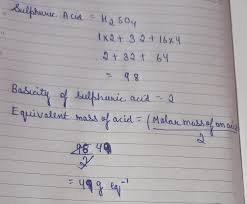 Sulphuric Acid = H2SO4
1x2 + 32 + 16x4
2 + 32 + 64
= 98
Basicity of sulphuric acid = 2
Equivalent mass of acid = (Molar mass of an acid
2
98 49
2
= 49 g eq-1